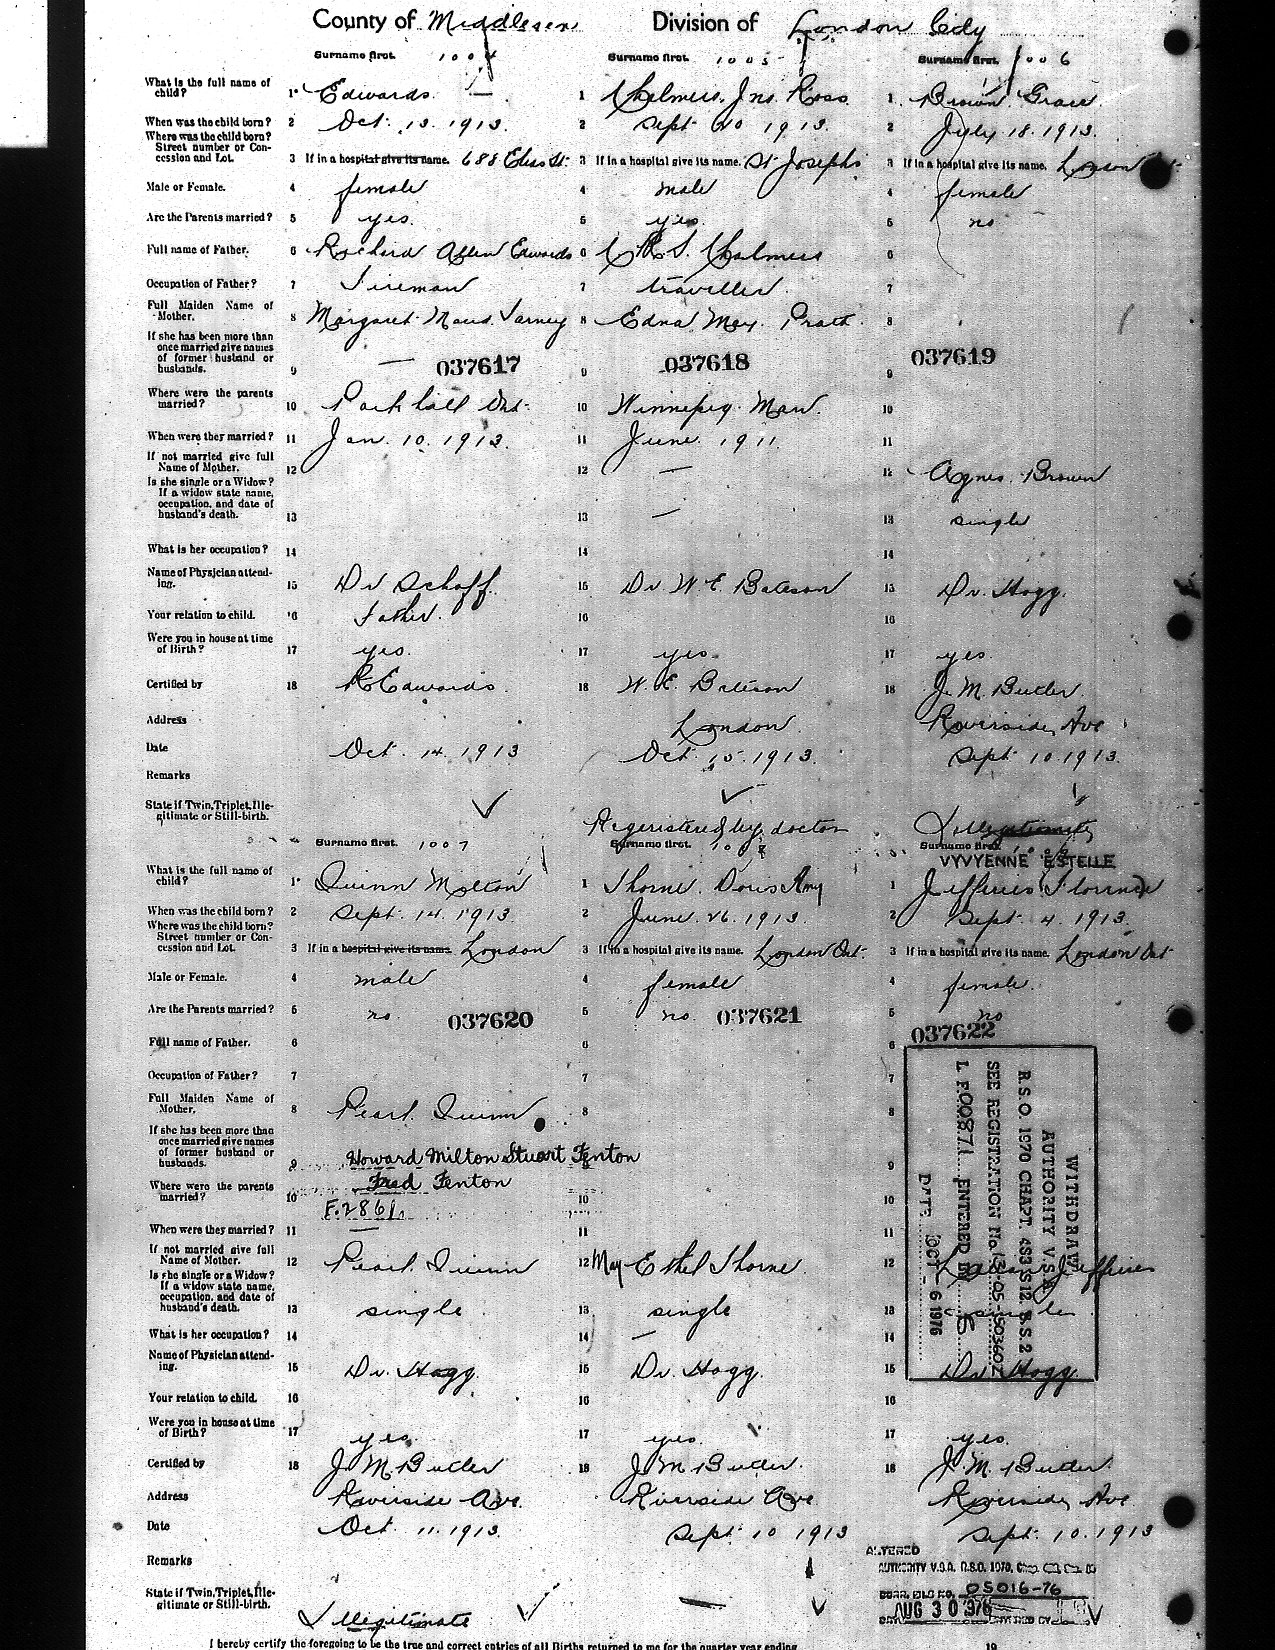 County of Middlesex Division of London City
Surname first. 1004 Surname first. 1005 Surname first. 1006
What is the full name of child? 1 Edwards — 1 Chalmers, Jno. Ross 1 Brown Grace
When was the child born? 2 Oct. 13. 1913. 2 Sept 20 1913. 2 July 18. 1913.
Where was the child born? Street number or Concession and Lot. 3 If in a hospital give its name. 688 Elias St. 3 If in a hospital give its name. St Josephs 3 If in a hospital give its name. London Ont.
Male or Female. 4 female 4 male 4 female
Are the Parents married? 5 yes. 5 yes 5 no
Full name of Father. 6 Richard Allen Edwards 6 C R S. Chalmers 6
Occupation of Father? 7 Fireman 7 traveller. 7
Full Maiden Name of Mother. 8 Margaret Maud Varney 8 Edna May. Pratt 8
If she has been more than once married give names of former husband or husbands. 9 — 037617 9 037618 9 037619
Where were the parents married? 10 Parkhill Ont. 10 Winnipeg. Man. 10
When were they married? 11 Jan. 10. 1913. 11 June. 1911 11
If not married give full Name of Mother. 12 12 — 12 Agnes Brown
Is she single or a Widow? If a widow state name, occupation, and date of husband's death. 13 13 — 13 single
What is her occupation? 14 14 14
Name of Physician attending. 15 Dr Schoff. 15 Dr. W E Bateson 15 Dr. Hogg.
Your relation to child. 16 Father. 16 16
Were you in house at time of Birth? 17 yes. 17 yes. 17 yes.
Certified by 18 R Edwards. 18 W. E. Bateson 18 J. M. Butler.
Address London. Riverside Ave
Date Oct. 14. 1913 Oct. 15. 1913. Sept 10. 1913.
Remarks
State if Twin, Triplet, Illegitimate or Still-birth. Registered by doctor Illegitimate
Surname first. 1007 Surname first. 1008 Surname first.
VYVYENNE ESTELLE
What is the full name of child? 1 Quinn Milton 1 Thorne. Doris Amy 1 Jefferies Florence
When was the child born? 2 Sept. 14. 1913. 2 June. 26. 1913. 2 Sept 4. 1913.
Where was the child born? Street number or Concession and Lot. 3 If in a hospital give its name. London 3 If in a hospital give its name. London Ont. 3 If in a hospital give its name. London Ont
Male or Female. 4 male 4 female 4 female.
Are the Parents married? 5 no 037620 5 no. 037621 5 no
037622
Full name of Father. 6 6 6
Occupation of Father? 7 7 7
Full Maiden Name of Mother. 8 Pearl Quinn 8 8
If she has been more than once married give names of former husband or husbands. 9 Howard Milton Stuart Fenton 9
Where were the parents married? 10 Fred Fenton 10 10
F.2861
When were they married? 11 — 11 11
If not married give full Name of Mother. 12 Pearl Quinn 12 May Ethel Thorne. 12 Jefferies
Is she single or a Widow? If a widow state name, occupation, and date of husband's death. 13 single 13 single 13 single
What is her occupation? 14 14 — 14
Name of Physician attending. 15 Dr. Hogg. 15 Dr. Hogg. 15 Dr. Hogg.
WITHDRAWN
AUTHORITY V.S.A.
R.S.O. 1970 CHAPT. 483 S12 S.S.2
SEE REGISTRATION No. 13-05-150360Z
L. F.00871 ENTERED BY
DATE OCT - 6 1976
Your relation to child. 16 16 16
Were you in house at time of Birth? 17 yes. 17 yes. 17 yes.
Certified by 18 J. M. Butler 18 J. M Butler. 18 J. M. Butler.
Address Riverside Ave. Riverside Ave Riverside Ave
Date Oct. 11. 1913. Sept. 10 1913 Sept. 10. 1913
ALTERED
Remarks AUTHORITY V.S.A. R.S.O. 1970,
CORR. FILE NO. 05016-76
State if Twin, Triplet, Illegitimate or Still-birth. Illegitimate AUG 30 1976
I hereby certify the foregoing to be the true and correct entries of all Births returned to me for the quarter year ending 19